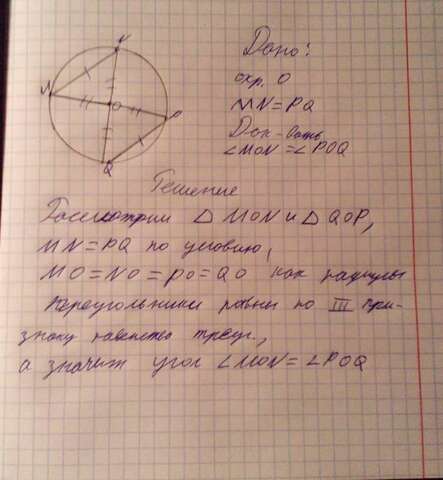 N
M
O
P
Q
Дано:
окр. O
MN=PQ
Док-вать
∠MON=∠POQ
Решение
Рассмотрим △ MON и △ QOP,
MN=PQ по условию,
MO=NO=PO=QO как радиусы
треугольники равны по III при-
знаку равенства треуг.,
а значит угол ∠MON=∠POQ